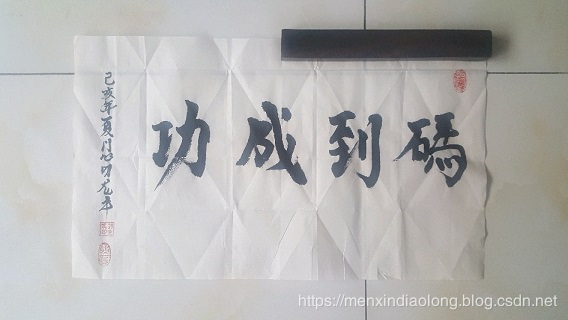 码到成功
己亥年夏月
https://menxindiaolong.blog.csdn.net